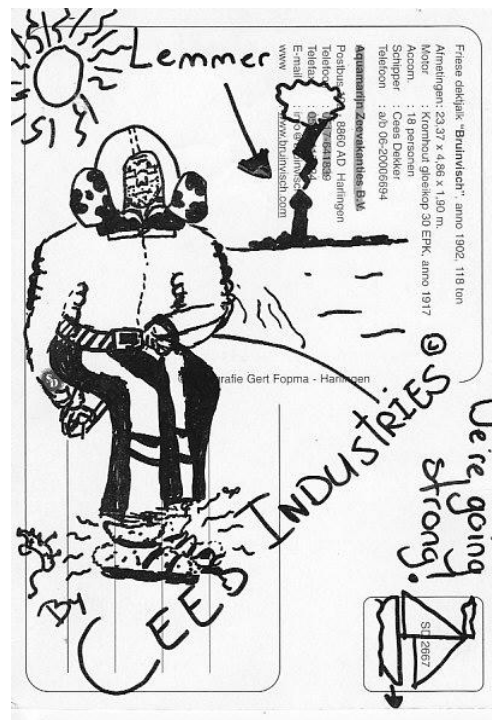 Friese dektjalk "Bruinvisch", anno 1902, 118 ton
Afmetingen: 23,37 x 4,86 x 1,90 m.
Motor : Kromhout gloeikop 30 EPK, anno 1917
Accom. : 18 personen
Schipper : Cees Dekker
Telefoon : a/b 06-20006694
Aquamarijn Zeevakanties B.V.
Postbus 8860 AD Harlingen
Telefoon 0517-641839
Telefax :
E-mail : info@
www www.bruinvisch.com
Lemmer
grafie Gert Fopma - Harlingen
We're going
strong!
INDUSTRIES
By
CEED
SD 2667